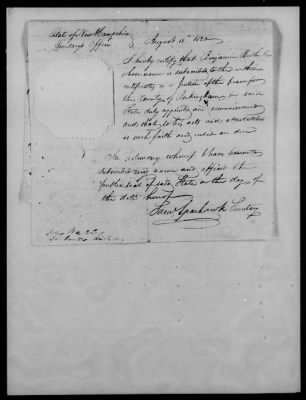 State of New Hampshire
Secretarys Office
August 11th 1820
I hereby certify that Benjamin
whose name is subscribed to the within
certificate is a Justice of the peace for
the County of Rockingham in said
State duly appointed and commissioned
and that to his acts and attestations
as such faith and credit are due
In testimony whereof I have hereunto
subscribed my name and affixed the
public seal of said State on the day of
the date hereof
Sam Sparhawk Secretary